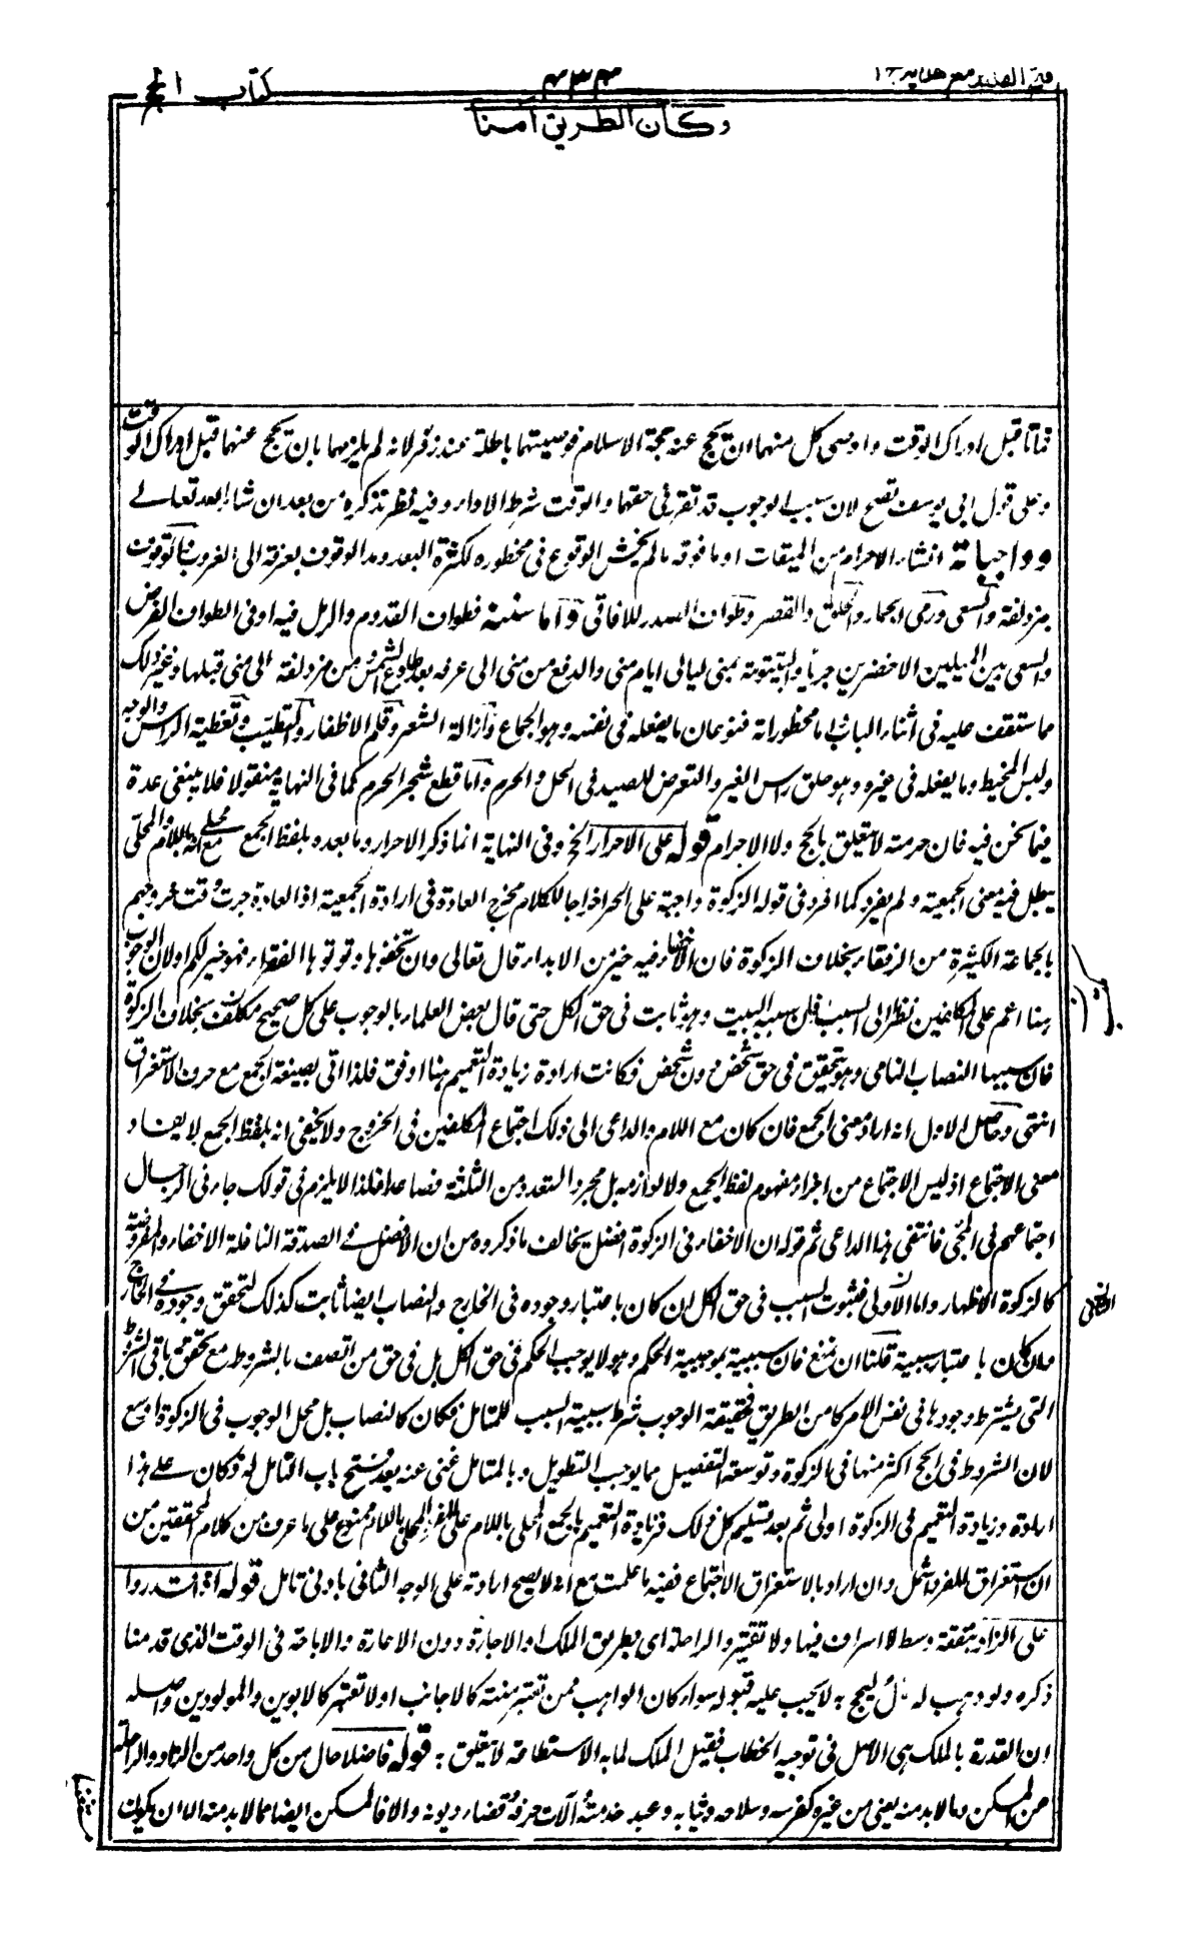 فتح القدير مع هدايه ج ١ ٤٣٣ كتاب الحج
وكان الطريق آمنا
فماتا قبل ادراك الوقت واوصى كل منهما ان يحج عنه حجة الاسلام فوصيتهما باطلة عند زفر لانه لم يلزمهما بان يحج عنهما قبل ادراك الوقت
وعلى قول ابى يوسف تصح لان سبب الوجوب قد تقرر فى حقهما والوقت شرط الاداء وفيه نظر نذكره من بعد ان شاء الله تعالى
وواجباته انشاء الاحرام من الميقات او ما فوقه ما لم يخش الوقوع فى محظوره لكثرة البعد ومد الوقوف بعرفة الى الغروب والوقوف
بمزدلفة والسعى ورمى الجمار والحلق والقصر وطواف الصدر للافاقى واما سننه فطواف القدوم والرمل فيه او فى الطواف الفرض
والسعى بين الميلين الاخضرين جريا والبيتوتة بمنى ليالى ايام منى والدفع من منى الى عرفه بعد طلوع الشمس ومن مزدلفة الى منى قبلها وغير ذلك
مما ستقف عليه فى اثناء الباب اما محظوراته فنوعان ما يفعله فى نفسه وهو الجماع وازالة الشعر وقلم الاظفار والتطيب وتغطية الراس والوجه
ولبس المخيط وما يفعله فى غيره وهو حلق راس الغير والتعرض للصيد فى الحل والحرم واما قطع شجر الحرم كما فى النهاية منقولا فلا ينبغى عده
فيما نحن فيه فان حرمته لا يتعلق بالحج ولا الاحرام قوله على الاحرار الخ وفى النهاية انما ذكر الاحرار وما بعده بلفظ الجمع محلى مع انه باللام والمحلى
يبطل فيه معنى الجمعية ولم يفرد كما افرد فى قوله الزكوة واجبة على الحر اخراجا للكلام مخرج العادة فى ارادة الجمعية اذ العادة جرت وقت خروجهم
بالجماعة الكثيرة من الرفقاء بخلاف الزكوة فان الاخفاء فيه خير من الابداء قال تعالى وان تخفوها وتوتوها الفقراء فهو خير لكم او لان الوجوب
هنا اعم على المكلفين نظرا الى السبب فان سببه البيت وهو ثابت فى حق الكل حتى قال بعض العلماء بالوجوب على كل صحيح مكلف بخلاف الزكوة
فان سببها النصاب النامى وهو يتحقق فى حق شخص دون شخص فكانت ارادة زيادة التعميم هنا اوفق فلذا اتى بصيغة الجمع مع حرف الاستغراق
انتهى وحاصل الاول انه اراد معنى الجمع فان كان مع اللام والداعى الى ذلك اجتماع المكلفين فى الخروج ولا يخفى انه بلفظ الجمع لا يفاد
معنى الاجتماع اذ ليس الاجتماع من اجزاء مفهوم لفظ الجمع ولا لوازمه بل مجرد التعدد من الثلثة فصاعدا فلذا لا يلزم فى قولك جاءنى الرجال
اجتماعهم فى المجئى فانتفى هذا الداعى ثم قوله ان الاخفاء فى الزكوة افضل يخالف ما ذكروه من ان الافضل فى الصدقة النافلة الاخفاء والمفروضة
كالزكوة الاظهار واما الاولى فثبوت السبب فى حق الكل ان كان باعتبار وجوده فى الخارج والنصاب ايضا ثابت كذلك لتحقق وجوده فى الخارج
وان كان باعتبار سببية قلنا ان نمنع فان سببية بموجبية الحكم وهو لا يوجب الحكم فى حق الكل بل فى حق من اتصف بالشروط مع تحقق باقى الشرط
التى يشترط وجودها فى نفس الامر كامن الطريق فحقيقة الوجوب شرط سببية السبب للمتامل فكان كالنصاب بل محل الوجوب فى الزكوة اوسع
لان الشروط فى الحج اكثر منها فى الزكوة وتوسعة التفصيل مما يوجب التطويل وبالمتامل غنى عنه بعد فتح باب التامل له وكان على هذا
ارادة وزيادة التعميم فى الزكوة اولى ثم بعد تسليم كل ذلك فزيادة التعميم بالجمع المحلى باللام على المفرد المحلى باللام ممنوع على ما عرف من كلام المحققين من
ان استغراق المفرد اشمل وان اراد بالاستغراق الاجتماع ففيه ما علمت مع انه لا يصح ارادته على الوجه الثانى بادنى تامل قوله اذا قدروا
على الزاد بنفقة وسط لا اسراف فيها ولا تقتير والراحلة اى بطريق الملك او الاجارة دون الاعارة والاباحة فى الوقت الذى قدمنا
ذكره ولو وهب له مال ليحج به لا يجب عليه قبوله سواء كان الواهب ممن تعتبر منته كالاجانب او لا تعتبر كالابوين والمولودين واصله
ان القدرة بالملك هى الاصل فى توجيه الخطاب فقبل الملك لما به الاستطاعة لا يتعلق به قوله فاضلا حال من كل واحد من الزاد والراحلة
عن المسكن وما لابد منه يعنى من غيره كفرسه وسلاحه وثيابه وعبد خدمته وآلات حرفه وقضاء ديونه والا فالمسكن ايضا مما لابد منه الا ان يكون